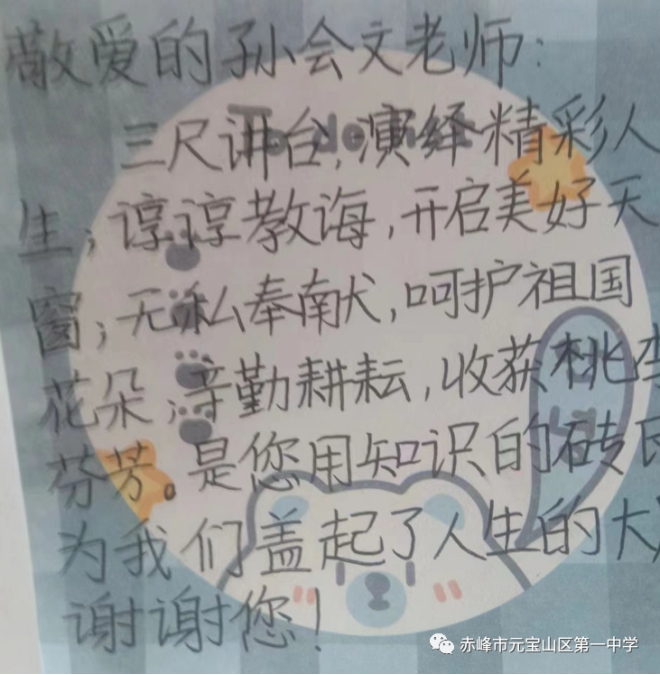 敬爱的孙会文老师:
三尺讲台,演绎精彩人
生;谆谆教诲,开启美好天
窗;无私奉献,呵护祖国
花朵;辛勤耕耘,收获桃李
芬芳。是您用知识的砖瓦
为我们盖起了人生的大
谢谢您!
赤峰市元宝山区第一中学